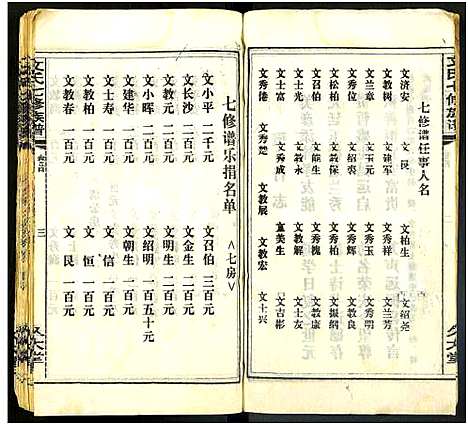 文氏七修族谱
七修谱任事人名
文济安 文良 文柏生 文绍尧
文树友 文建军 文秀祥 文兰芳
文兰章 文玉元 文秀玉 文秀明
文秀位 文绍裘 文秀槐 文教良
文松柏 文教元 文秀柏 文振纲
文召伯 文能生 文秀槐 文教康
文士富 文教永 文教解 文士彬
文秀楚 文秀成 童美生 文吉彬
文教展 文教宏 文士兴
七修谱乐捐名单 〈七房〉
文小平 二千元 文召伯 三百元
文长沙 二百元 文金生 二百元
文教元 二百元 文明生 二百元
文小晖 二百元 文绍明 一百五十元
文建华 一百元 文朝生 一百元
文士寿 一百元 文信 一百元
文教柏 一百元 文恒 一百元
文教春 一百元 文良 一百元
文氏七修族谱
三